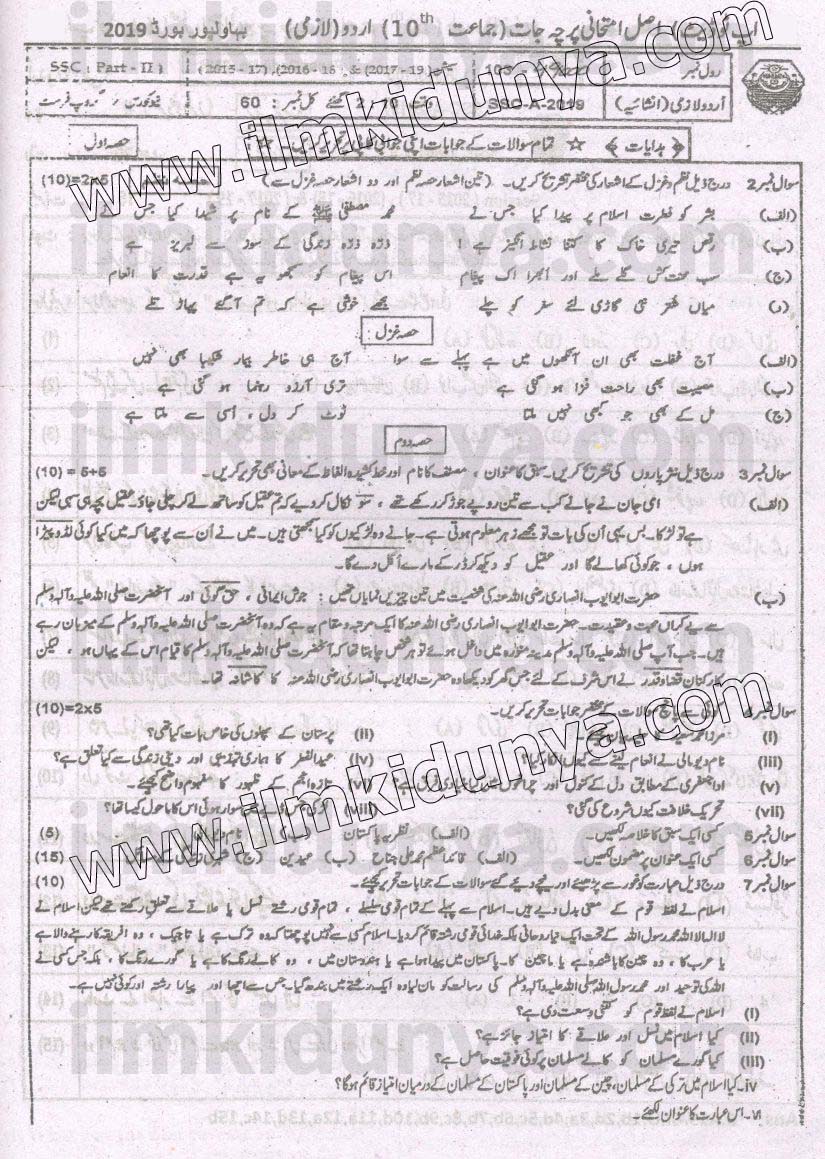 اصل امتحانی پرچہ جات (جماعت 10th) اردو (لازمی) بہاولپور بورڈ 2019
رول نمبر (2015 - 17), (2016 - 18) & (2017 - 19) SSC (Part - II)
اُردو لازمی (انشائیہ) SSC-A-2019 وقت 2:10 گھنٹے کل نمبر: 60
﴿ہدایات﴾ ☆ تمام سوالات کے جوابات اپنی جوابی کاپی پر تحریر کریں۔ ☆ حصہ اول
سوال نمبر 2 درج ذیل نظم و غزل کے اشعار کی مختصر تشریح کریں۔ (تین اشعار حصہ نظم اور دو اشعار حصہ غزل سے) (10)=2x5
(الف) بشر کو فطرت اسلام پر پیدا کیا جس نے محمد مصطفیٰ ﷺ کے نام پر شیدا کیا جس نے
(ب) رقص تیری خاک کا کتنا نشاط انگیز ہے ذرّہ ذرّہ زندگی کے سوز سے لبریز ہے
(ج) سب محنت کش گلے ملے اور اُبھرا اک پیغام اس پیغام کو سمجھو یہ ہے قدرت کا انعام
(د) میاں شتر نئی گاڑی لئے سفر کو چلے مجھے خوشی ہے کہ تم آ گئے پہاڑ تلے
حصہ غزل:
(الف) آج غفلت بھی ان آنکھوں میں ہے پہلے سے سوا آج ہی خاطر بیمار شکیبا بھی نہیں
(ب) مصیبت بھی راحت فزا ہو گئی ہے تری آرزو رہنما ہو گئی ہے
(ج) مل کے بھی جو کبھی نہیں ملتا ٹوٹ کر دل، اُسی سے ملتا ہے
حصہ دوم
سوال نمبر 3 درج ذیل نثر پاروں کی تشریح کریں۔ سبق کا عنوان، مصنف کا نام اور خط کشیدہ الفاظ کے معانی بھی تحریر کریں۔ (10) = 5+5
(الف) امی جان نے جانے کب سے تین روپے جوڑ کر رکھے تھے، سو نکال کر دیے کہ تم عقیل کو ساتھ لے کر چلی جاؤ۔ عقیل بچہ ہی سہی لیکن
ہے تو لڑکا۔ بس یہی اُن کی بات تو مجھے زہر معلوم ہوتی ہے۔ جانے وہ لڑکیوں کو کیا سمجھتی ہیں۔ میں نے اُن سے پوچھا کہ میں کیا کوئی لڈو پیڑا
ہوں، جو کوئی کھا لے گا اور عقیل کو دیکھ کر ڈر کے مارے اُگل دے گا۔
(ب) حضرت ابو ایوب انصاری رضی اللہ عنہ کی شخصیت میں تین چیزیں نمایاں تھیں: جوش ایمانی، حق گوئی اور آنحضرت صلی اللہ علیہ وآلہ وسلم
سے بے کراں محبت و عقیدت۔ حضرت ابو ایوب انصاری رضی اللہ عنہ کا ایک مرتبہ و مقام یہ ہے کہ وہ آنحضرت صلی اللہ علیہ وآلہ وسلم کے میزبان رہے
ہیں۔ جب آپ صلی اللہ علیہ وآلہ وسلم مدینہ منورہ میں داخل ہوئے تو ہر شخص چاہتا تھا کہ آنحضرت صلی اللہ علیہ وآلہ وسلم کا قیام اس کے یہاں ہو، لیکن
کارکنان قضا و قدر نے اس شرف کے لئے جس گھر کو دیکھا وہ حضرت ابو ایوب انصاری رضی اللہ عنہ کا کاشانہ تھا۔
سوال نمبر 4 کوئی سے پانچ سوالات کے مختصر جوابات تحریر کریں۔ (10)=2x5
(i) (ii) پرستان کے پھلوں کی خاص بات کیا تھی؟
(iii) نام دیو مالی نے انعام لینے سے کیوں انکار کیا؟ (iv) عید الفطر کا ہماری تہذیبی اور دینی زندگی سے کیا تعلق ہے؟
(v) ادا جعفری کے مطابق دل کے کنول اور چراغوں میں (vi) تازہ انجم کے ظہور کا مفہوم واضح کیجیے۔
(vii) تحریک خلافت کیوں شروع کی گئی؟ (viii) سوار ہوئی اس کا ماحول کیسا تھا؟
سوال نمبر 5 کسی ایک سبق کا خلاصہ لکھیں۔ (الف) نظریہ پاکستان (ب) نام دیو (5)
سوال نمبر 6 کسی ایک عنوان پر مضمون لکھیں۔ (الف) قائد اعظم محمد علی جناح (ب) عیدین (ج) (15)
سوال نمبر 7 درج ذیل عبارت کو غور سے پڑھیے اور نیچے دیے گئے سوالات کے جوابات تحریر کیجیے۔ (10)
اسلام نے لفظ قوم کے معنی بدل دیے ہیں۔ اسلام سے پہلے کے تمام قومی سلسلے، تمام قومی رشتے نسل یا علاقے سے تعلق رکھتے تھے لیکن اسلام نے
لا الٰہ الا اللہ محمد رسول اللہ کے تحت ایک نیا روحانی بلکہ خدائی قومی رشتہ قائم کر دیا۔ اسلام کسی سے نہیں پوچھتا کہ وہ ترک ہے یا تاجیک، وہ افریقہ کا رہنے والا ہے
یا عرب کا، وہ چین کا باشندہ ہے یا ماچین کا۔ پاکستان میں پیدا ہوا ہے یا ہندوستان میں، وہ کالے رنگ کا ہے یا گورے رنگ کا، بلکہ جس کسی نے
اللہ کی توحید اور محمد رسول اللہ صلی اللہ علیہ وآلہ وسلم کی رسالت کو مان لیا وہ ایک رشتے میں بندھ گیا۔ جس سے اچھا اور پیارا رشتہ اور کوئی نہیں ہے۔
(i) اسلام نے لفظ قوم کو کتنی وسعت دی ہے؟
(ii) کیا اسلام میں نسل اور علاقے کا امتیاز جائز ہے؟
(iii) کیا گورے مسلمان کو کالے مسلمان پر کوئی فوقیت حاصل ہے؟
iv۔ کیا اسلام میں ترکی کے مسلمان، چین کے مسلمان اور پاکستان کے مسلمان کے درمیان امتیاز قائم ہوگا؟
v۔ اس عبارت کا عنوان لکھئے۔
www.ilmkidunya.com
www.ilmkidunya.com
ilmkidunya.com
ilmkidunya.com
ilmkidunya.com
ilmkidunya.com